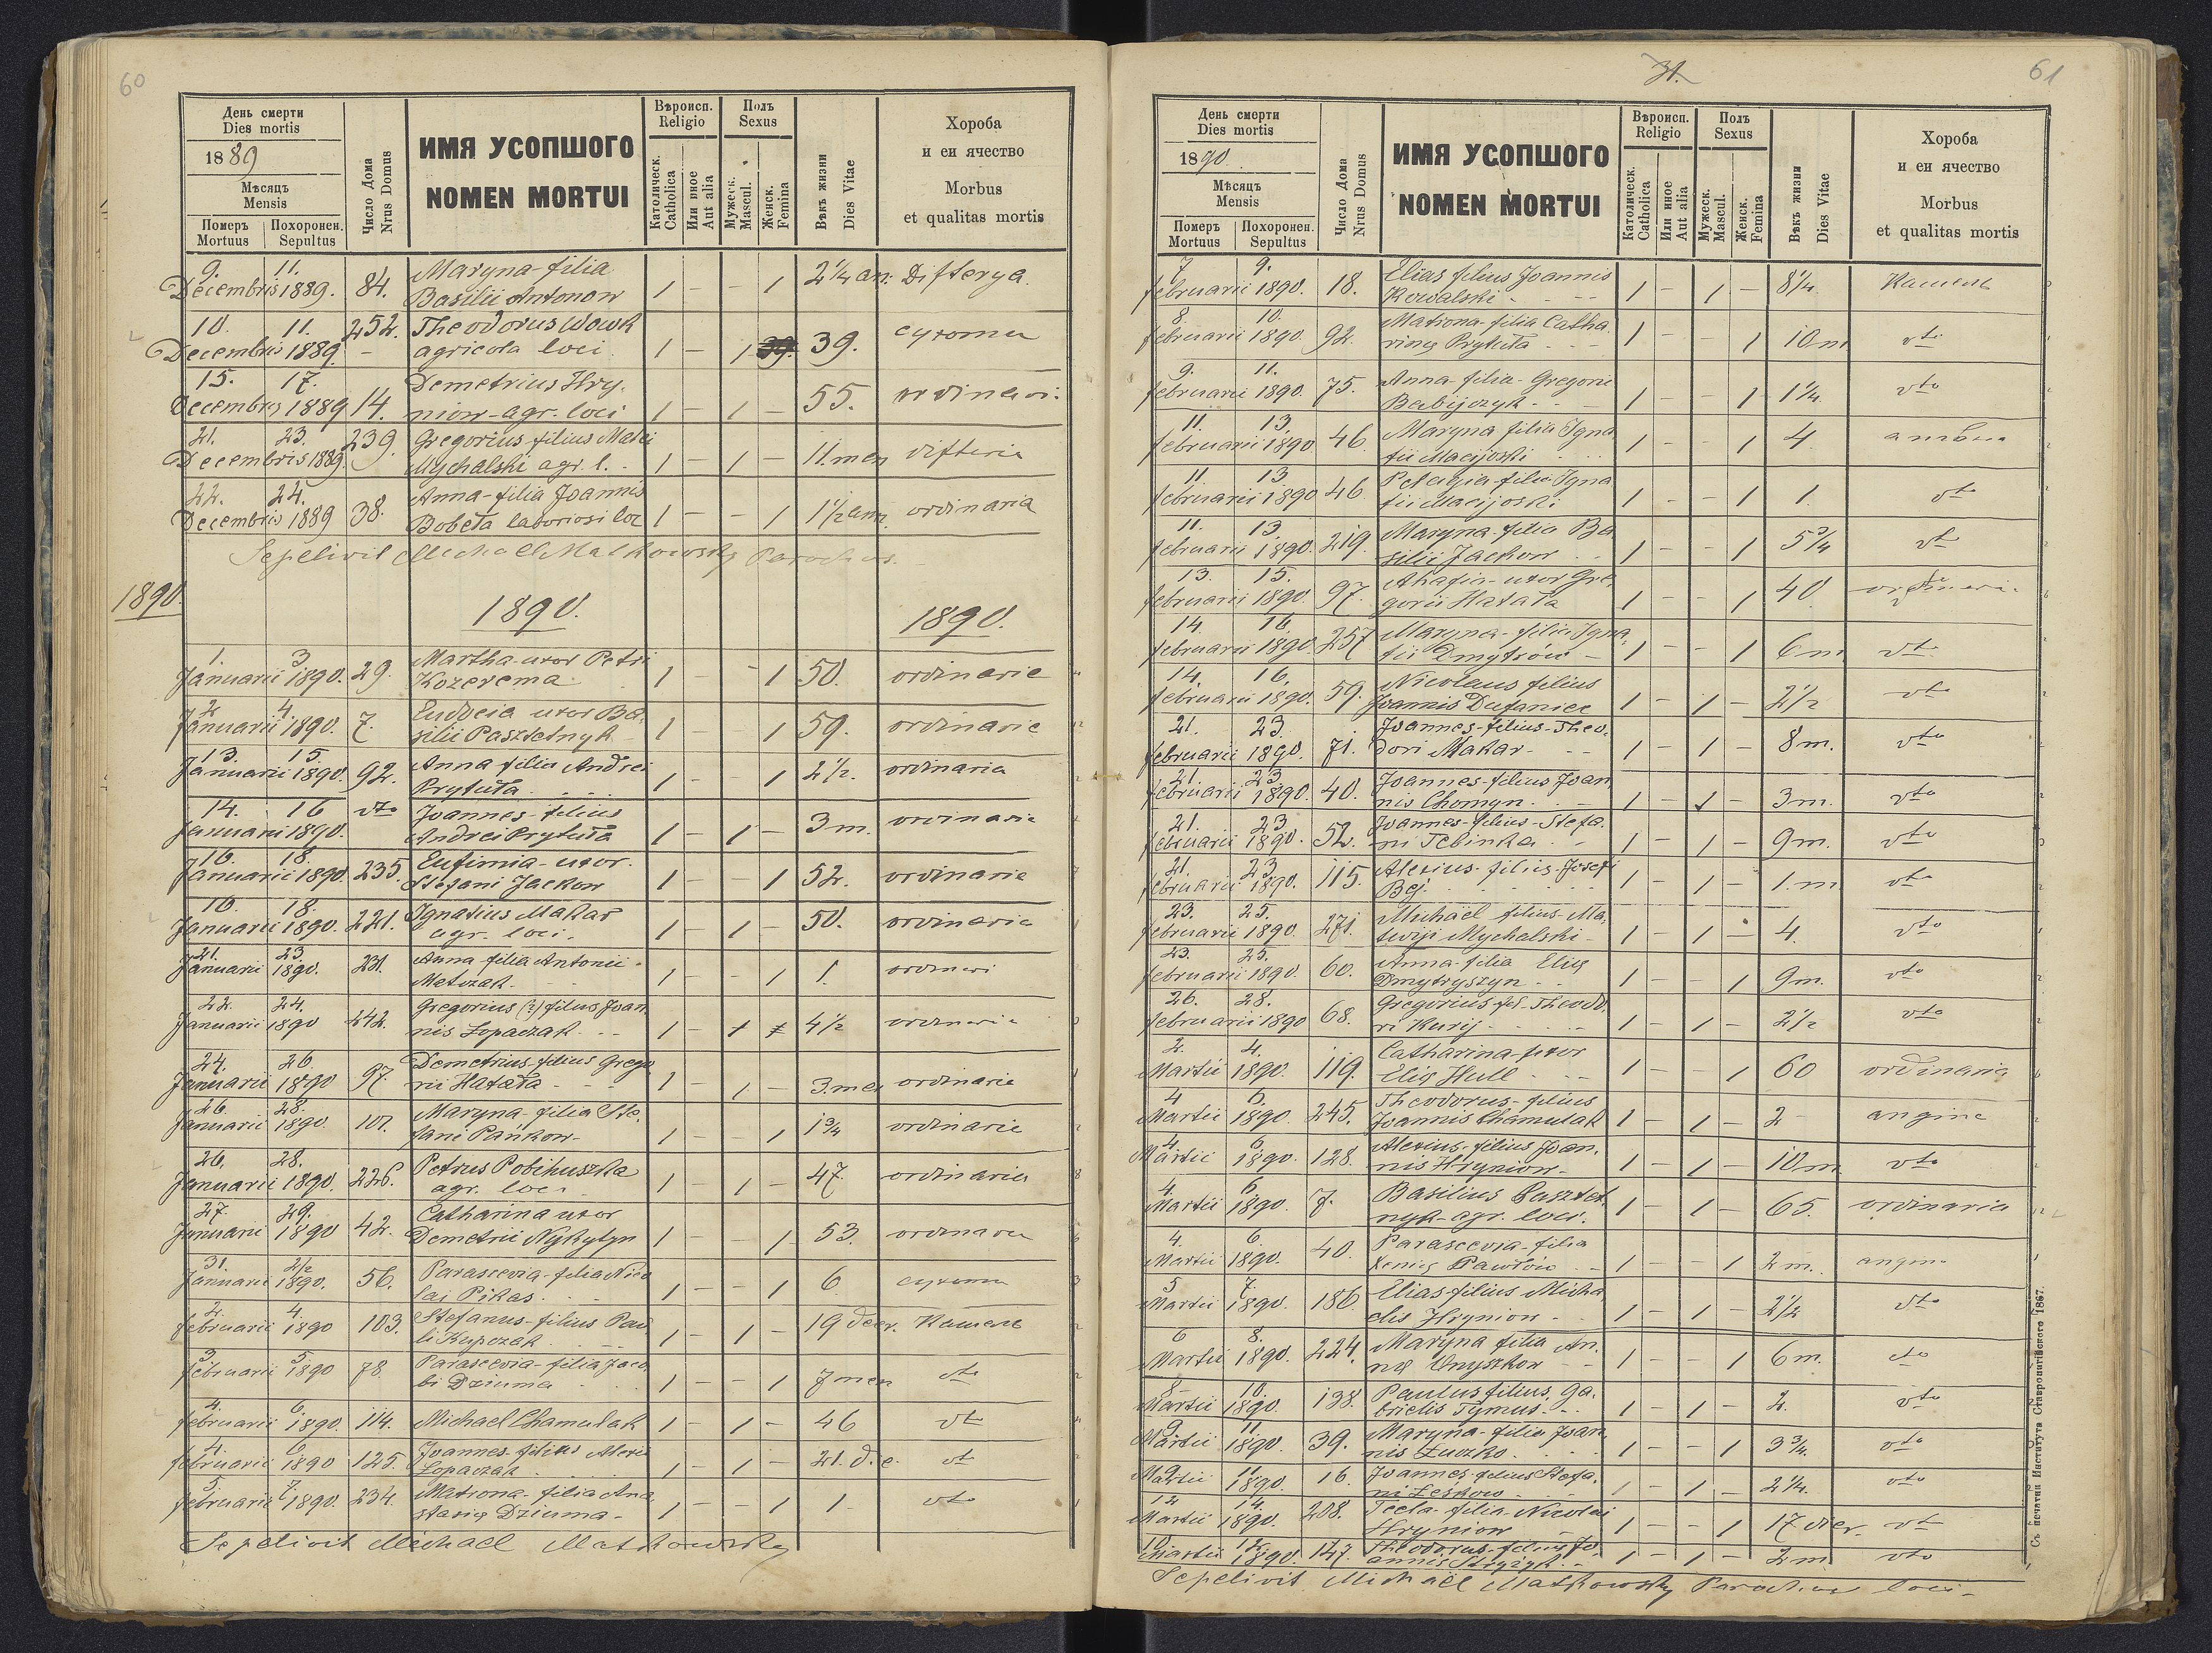 60
День смерти
Dies mortis
1889
Мѣсяцъ
Mensis
Померъ
Mortuus
Похоронен.
Sepultus
Число Дома
Nrus Domus
ИМЯ УСОПШОГО
NOMEN MORTUI
Вѣроисп.
Religio
Католическ.
Catholica
Или иное
Aut alia
Полъ
Sexus
Мужеск.
Mascul.
Женск.
Femina
Вѣкъ жизни
Dies Vitae
Хороба
и еи ячество
Morbus
et qualitas mortis
9. 11. Maryna-filia
Decembris 1889. 84. Basilii Antonow 1 - - 1 2 1/4 an. Difterya.
10. 11. 252. Theodorus Wowk
Decembris 1889 - agricola loci 1 - 1 39.
15. 17. Demetrius Hry-
Decembris 1889 14. niow-agr. loci 1 - 1 - 55. ordinari.
21. 23. 239. Gregorius-filius Matei
Decembris 1889. Mychalski agr. l. - 1 - 1 - 11. men difteria
22. 24. Anna-filia Joannis
Decembris 1889 38. Bobeła laboriosi loc 1 - - 1 1 1/2 ann. ordinaria
Sepelivit Michael Matkowsky Parochus.
1890.
1890. 1890.
1. 3 Martha-uxor Petri
Januarii 1890. 29. Kozerema 1 - - 1 50. ordinarie
2 4. Eudocia uxor Ba-
Januarii 1890. 7. silii Pasztetnyk 1 - - 1 59. ordinarie
13. 15. Anna filia Andrei
Januarii 1890. 92. Prytuła 1 - - 1 2 1/2. ordinaria
14. 16 vto Joannes-filius
Januarii 1890. Andrei Prytuła 1 - 1 - 3 m. ordinarie
16. 18. Eufimia-uxor
Januarii 1890. 235. Stefani Jackow 1 - - 1 52. ordinarie
16. 18. Ignatius Makar
Januarii 1890. 221. agr. loci. 1 - 1 - 50. ordinaria
21. 23. Anna filia Antonii
Januarii 1890. 231. Matczak. 1 - - 1 1. ordinari
22. 24. Gregorius (?) filius Joan
Januarii 1890 242. nis Łopaczak 1 - 4 1/2 ordinaria
24. 26. Demetrius-filius Grego
Januarii 1890 97. rii Hatała 1 - 1 - 3. men ordinarie
26. 28. Maryna-filia Ste-
Januarii 1890. 101. fani Pankow- 1 - - 1 1 3/4 ordinarie
26. 28. Petrus Pobihuszka
Januarii 1890. 226. agr. loci 1 - 1 - 47. ordinaria
27. 29. Catharina uxor
Januarii 1890 42. Demetrii Nykytyn 1 - - 1 53.
31. 2/2 Parascevia-filia Nico
Januarii 1890. 56. lai Pikas 1 - - 1 6
2. 4. Stefanus-filius Pau
februarii 1890 103. li Kupczak 1 - 1 - 19 dier. Кашель
3. 5 Parascevia-filia Jaco
februarii 1890 78. bi Dziuma 1 - - 1 7 men vto
4. 6.
februarii 1890. 114. Michael Chamulak 1 - 1 - 46 vto
4. 6 Joannes-filius Alexii
februarii 1890 125. Łopaczak 1 - 1 - 21. die. vto
5. 7. Matrona-filia Ana
februarii 1890. 234. stasię Dziuma- 1 - - 1 1. vto
Sepelivit Michael Matkowsky
31.
61
День смерти
Dies mortis
1890
Мѣсяцъ
Mensis
Померъ
Mortuus
Похоронен.
Sepultus
Число Дома
Nrus Domus
ИМЯ УСОПШОГО
NOMEN MORTUI
Вѣроисп.
Religio
Католическ.
Catholica
Или иное
Aut alia
Полъ
Sexus
Мужеск.
Mascul.
Женск.
Femina
Вѣкъ жизни
Dies Vitae
Хороба
и еи ячество
Morbus
et qualitas mortis
7. 9. Elias filius Joannis
februarii 1890. 18. Kowalski 1 - 1 - 8 1/4. Кашель
8. 10. Matrona-filia Catha
februarii 1890. 92. rinę Prytuła 1 - - 1 10 m vto
9. 11. Anna-filia-Gregorii
februarii 1890. 75. Babijczyk 1 - - 1 1 1/4. vto
11. 13. Maryna filia Igna
februarii 1890 46. tii Macijoski 1 - - 1 4
11 13 Pelagia-filia Igna
februarii 1890 46. tii Macijoski 1 - - 1 1. vto
11. 13. Maryna-filia Ba
februarii 1890. 219. silii Jackow 1 - - 1 5 3/4 vto
13. 15. Ahafia-uxor Gre-
februarii 1890. 97. gorii Hatała 1 - - 1 40.
14. 16 Maryna-filia Igna-
februarii 1890. 257 tii Dmytrów 1 - - 1 6 m vto
14. 16. Nicolaus filius
februarii 1890. 59. Joannis Dufaniec 1 - 1 - 2 1/2 vto
21. 23. Joannes-filius-Theo-
februarii 1890. 71. dori Makar- 1 - 1 - 8 m. vto
21. 23 Joannes-filius Joan
februarii 1890. 40. nis Chomyn 1 - 1 - 3 m. vto
21. 23 Joannes-filius-Stefa-
februarii 1890. 52. ni Tebinka 1 - 1 - 9 m. vto
21. 23. Alexius-filius-Josefi
februarii 1890. 115. Bej. 1 - 1 - 1. m vto
23. 25. Michaël filius-Ma-
februarii 1890. 271. twiji Mychalski- 1 - 1 - 4. vto
23. 25. Anna-filia Elię
februarii 1890. 60. Dmytryszyn 1 - - 1 9 m. vto
26. 28. Gregorius-fil-Theodo
februarii 1890 68. ri Kurij 1 - 1 - 2 1/2 vto
2. 4. Catharina-uxor
Martii 1890. 119. Elię Hull 1 - - 1 60 ordinaria
4 6. Theodorus-filius
Martii 1890. 245. Joannis Chamulak 1 - 1 - 2 angine
4. 6 Alexius-filius Joan-
Martii 1890. 128. nis Hryniow- 1 - 1 - 10 m vto
4. 6. Basilius Pasztet
Martii 1890. 7. nyk-agr. loci. 1 - 1 - 65. ordinaria
4. 6. Parascevia-filia
Martii 1890. 40. Xenię Pawłów 1 - - 1 2 m. angin
5 7. Elias-filius Micha
Martii 1890. 186. elis Hryniow 1 - 1 - 2 1/2 vto
6 8. Maryna filia An-
Martii 1890. 224. nę Onyszkow 1 - - 1 6 m. vto
8- 10. Paulus filius, Ga-
Martii 1890. 138. brielis Tymus 1 - 1 - 2. vto
9. 11. Maryna-filia Joan
Martii 1890. 39. nis Łuczko 1 - - 1 3 3/4. vto
9. 11. Joannes-filius Stefa-
Martii 1890. 16. ni Leśkow 1 - 1 - 2 1/4. vto
12 14. Tecla-filia-Nicolai
Martii 1890. 208. Hryniow 1 - - 1 17 dier. vto
10. 12. Theodorus-filius Jo-
Martii 1890. 147. annis 1 - 1 - 2 m vto
Sepelivit Michaël Matkowsky Parochus loci-
Съ печатни Института Ставропигійского 1867.